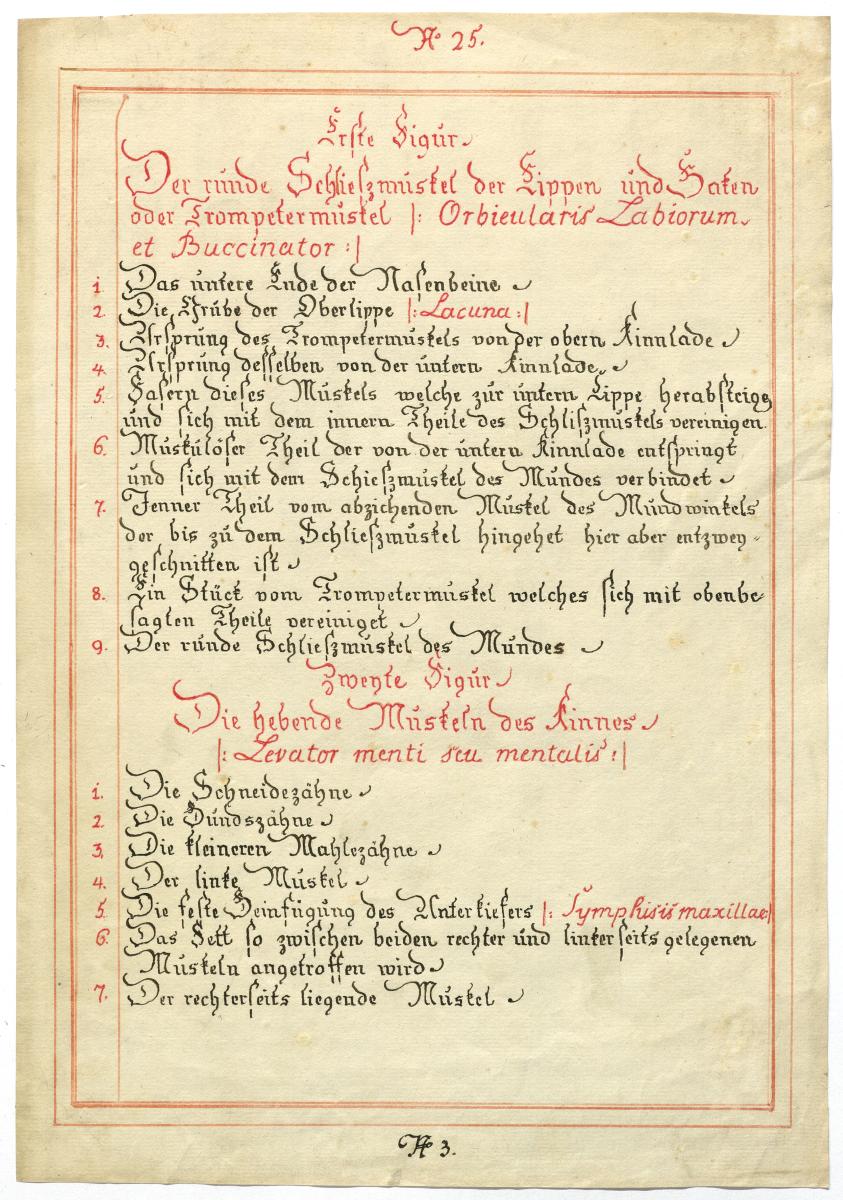 No 25.
Erste Figur
Der runde Schlieſzmuskel der Lippen und Baken
oder Trompetermuskel |: Orbieularis Labiorum
et Buccinator :|
1. Das untere Ende der Naſenbeine
2. Die Grube der Oberlippe |: Lacuna :|
3. Urſprung des Trompetermuskels von der obern Kinnlade
4. Urſprung desſelben von der untern Kinnlade.
5. Faſern dieſes Muskels welche zur untern Lippe herabſteigen
und ſich mit dem innern Theile des Schliſzmuskels vereinigen.
6. Muskulöſer Theil der von der untern Kinnlade entſpringt
und ſich mit dem Schieſzmuskel des Mundes verbindet
7. Jenner Theil vom abziehenden Muskel des Mundwinkels
der bis zu dem Schlieſzmuskel hingehet hier aber entzwey-
geſchnitten iſt
8. Ein Stück vom Trompetermuskel welches ſich mit obenbe-
ſagten Theile vereiniget
9. Der runde Schlieſzmuskel des Mundes
Zweyte Figur
Die hebende Muskeln des Kinnes
|: Levator menti seu mentalis :|
1. Die Schneidezähne
2. Die Hundszähne
3. Die kleineren Mahlezähne
4. Der linke Muskel
5. Die feſte Beinfügung des Unterkiefers |: Symphisis maxillae :|
6. Das Fett ſo zwiſchen beiden rechter und linkerſeits gelegenen
Muskeln angetroffen wird
7. Der rechterſeits liegende Muskel
No 3.